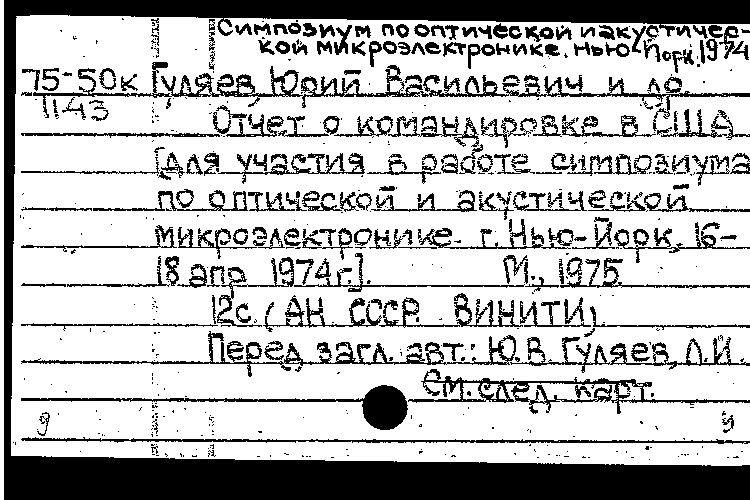 Симпозиум по оптической и акустичес-
кой микроэлектронике. Нью-Йорк. 1974
75-50к Гуляев, Юрий Васильевич и др.
1143 Отчет о командировке в США
[для участия в работе симпозиума
по оптической и акустической
микроэлектронике. г. Нью-Йорк, 16-
18 апр 1974 г.]. М., 1975
12с. (АН СССР. ВИНИТИ).
Перед загл. авт.: Ю.В. Гуляев, Л.И.
См. след. карт.
9 и